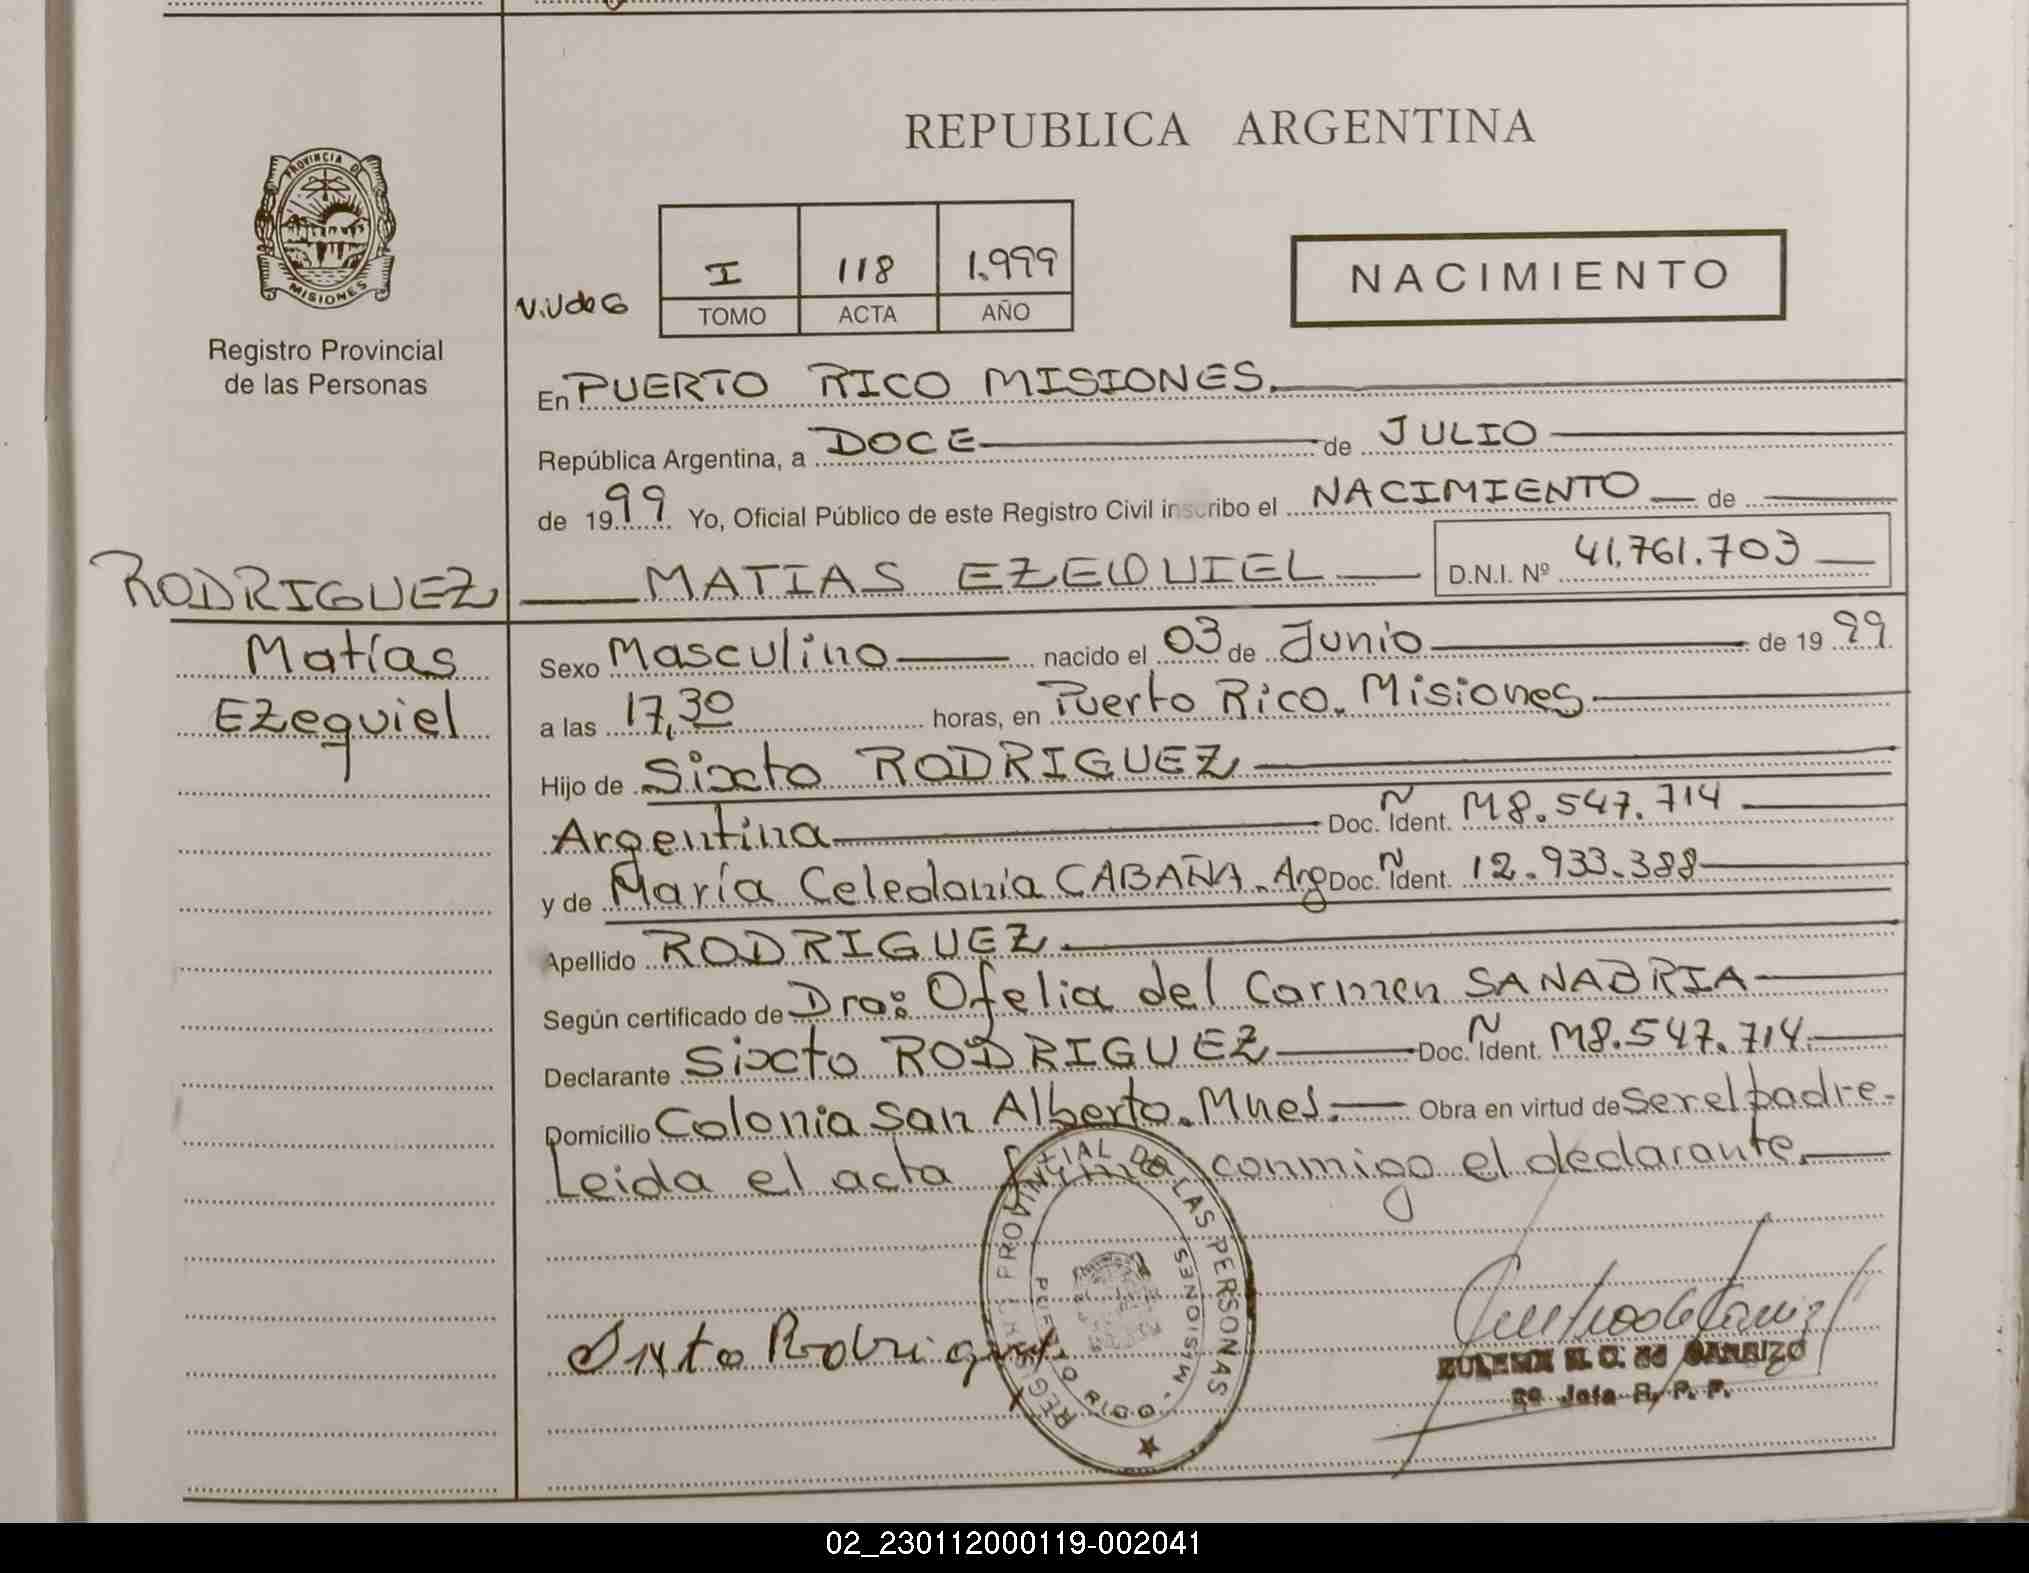 REPUBLICA ARGENTINA
PROVINCIA DE
MISIONES
Registro Provincial
de las Personas
I 118 1.999
TOMO ACTA AÑO
NACIMIENTO
En PUERTO RICO MISIONES.
República Argentina, a DOCE de JULIO
de 1999 Yo, Oficial Público de este Registro Civil inscribo el NACIMIENTO de
RODRIGUEZ MATIAS EZEQUIEL D.N.I. Nº 41.761.703
Matías
Ezequiel
Sexo Masculino nacido el 03 de Junio de 1999
a las 17,30 horas, en Puerto Rico. Misiones
Hijo de Sixto RODRIGUEZ
Argentina Doc. Ident. M8.547.714
y de María Celedonia CABAÑA. Arg Doc. Ident. 12.933.388
Apellido RODRIGUEZ
Según certificado de Dra: Ofelia del Carmen SANABRIA
Declarante Sixto RODRIGUEZ Doc. Ident. M8.547.714.
Domicilio Colonia San Alberto. Mnes. Obra en virtud de ser el padre.
Leida el acta firma conmigo el declarante.
REGISTRO PROVINCIAL DE LAS PERSONAS
PUERTO RICO - MISIONES
Sixto Rodriguez
ZULEMA N. C. de CARRIZO
2º Jefe R. P. P.
02_230112000119-002041